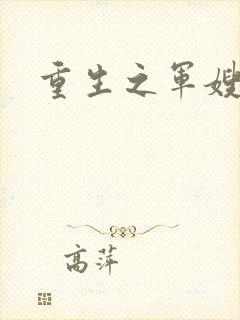 重生之军嫂
高萍